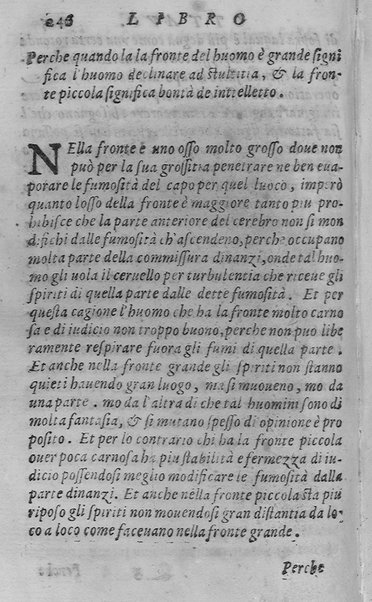 248 LIBRO
Perche quando la la fronte del huomo è grande signi
fica l'huomo declinare ad stultitia, & la fron-
te piccola significa bontà de intelletto.
NElla fronte è uno osso molto grosso doue non
può per la sua grossitia penetrare ne ben eua-
porare le fumosità del capo per quel luoco, imperò
quanto losso della fronte è maggiore tanto piu pro-
hibisce che la parte anteriore del cerebro non si mon
difichi dalle fumosità ch'ascendeno, perche occupano
molta parte della commissura dinanzi, onde tal huo-
mo gli uola il ceruello per turbulentia che riceue gli
spiriti di quella parte dalle dette fumosità. Et per
questa cagione l'huomo che ha la fronte molto carno
sa e di iudicio non troppo buono, perche non può libe
ramente respirare fuora gli fumi di quella parte.
Et anche nella fronte grande gli spiriti non stanno
quieti hauendo gran luogo, ma si muoueno, mo da
una parte. mo da l'altra di che tal huomini sono di
molta fantasia, & si mutano spesso di opinione è pro
posito. Et per lo contrario chi ha la fronte piccola
ouer poca carnosa ha piu stabilità e fermezza di iu-
dicio possendosi meglio modificare le fumosità dalla
parte dinanzi. Et anche nella fronte piccola sta piu
riposo gli spiriti non mouendosi gran distantia da lo
co a loco come faceuano nella fronte grande.
Perche